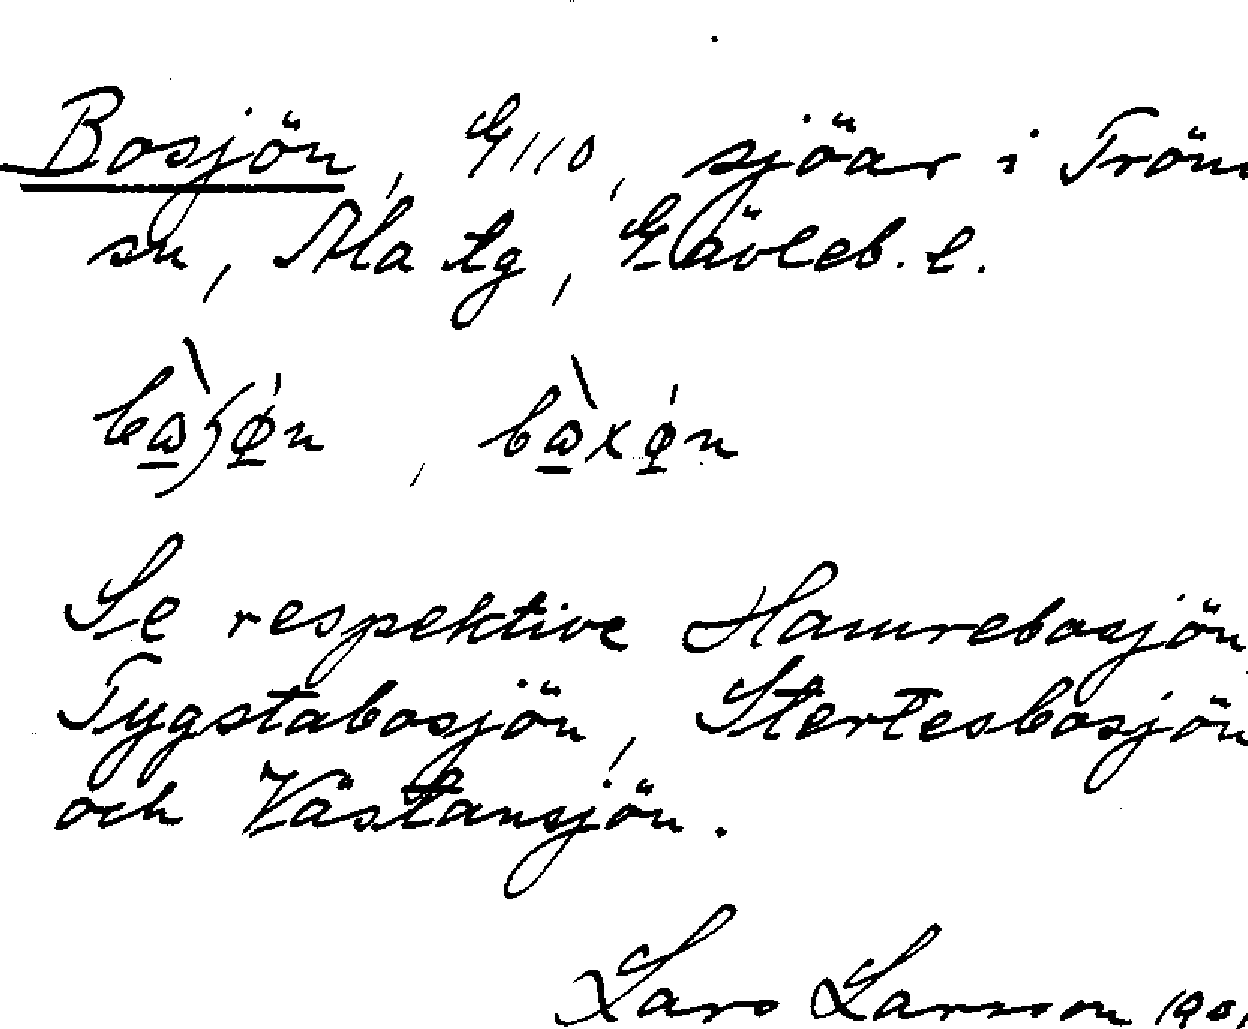 Bosjön, G110, sjöar i Trönö
sn, Ala tg, Gävleb. l.
Se respektive Hamrebosjön
Tygstabosjön, Stertesbosjön
och Västansjön.
Lars Larsson